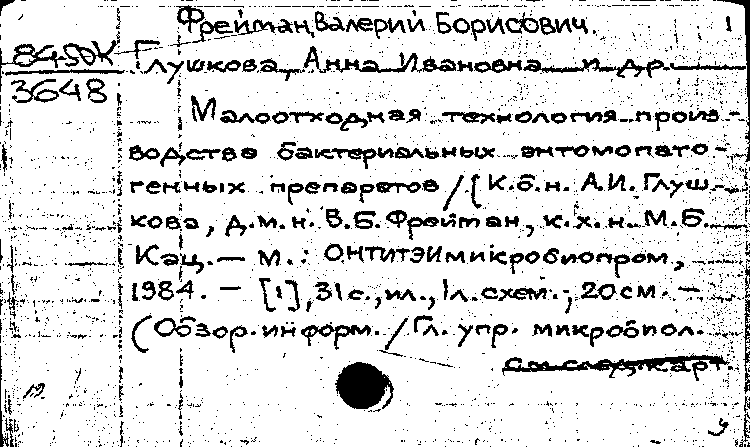 Фрейман, Валерий Борисович. 1
84-5DK
3648
Глушкова, Анна Ивановна и др.
Малоотходная технология произ-
водства бактериальных энтомопато-
генных препаратов / [К.б.н. А.И. Глуш-
кова, д.м.н. В.Б. Фрейман, к.х.н. М.Б.
Кац. — М.: ОНТИТЭИмикробиопром,
1984. — [1], 31 с., ил., 1 л. схем.; 20 см. —
(Обзор. информ. / Гл. упр. микробиол.
См. след. карт.
19
у